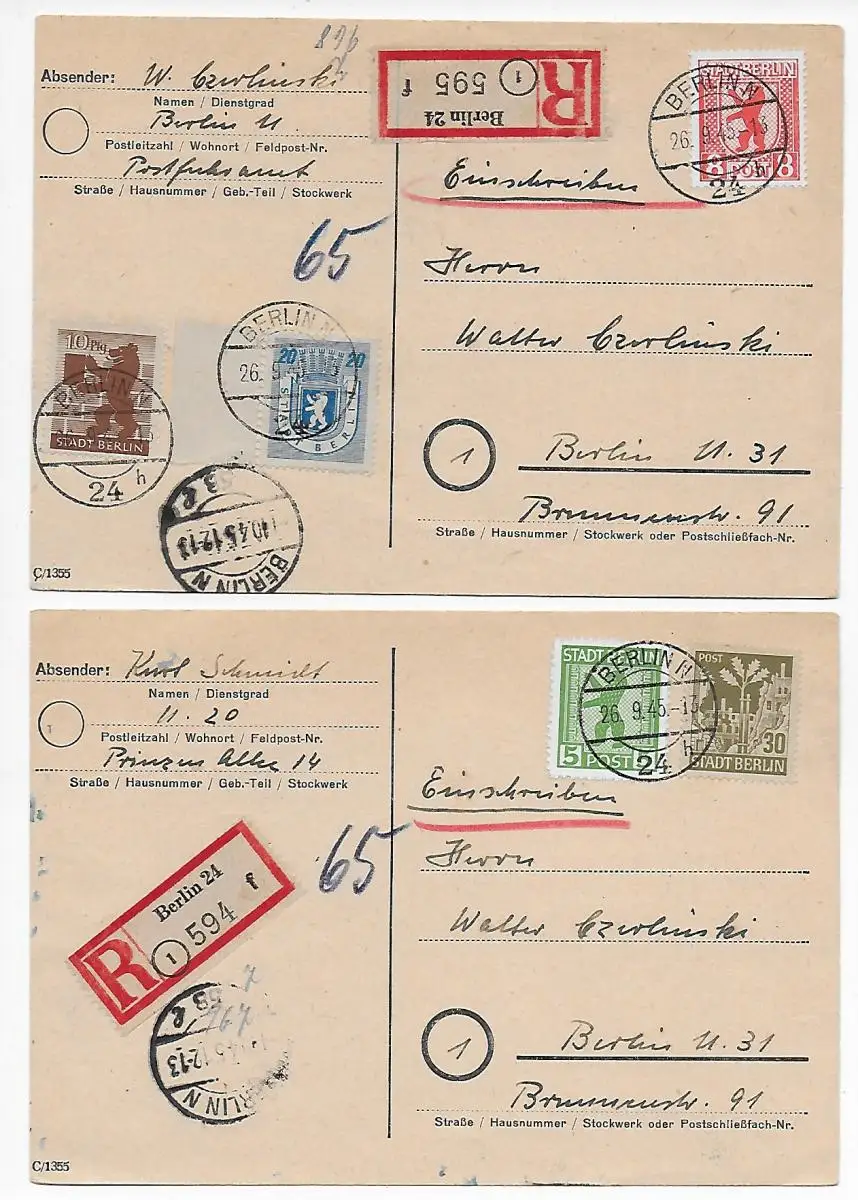 896
Absender: W. Czerlinski
Namen / Dienstgrad
Berlin N.
Postleitzahl / Wohnort / Feldpost-Nr.
Postfuhramt
Straße / Hausnummer / Geb.-Teil / Stockwerk
R
Berlin 24
1
595 f
STADT BERLIN
8 POST 8
BERLIN N
26. 9.45.-13
24 h
Einschreiben
65
Herrn
Walter Czerlinski
1
Berlin N. 31
Brunnenstr. 91
Straße / Hausnummer / Stockwerk oder Postschließfach-Nr.
10 Pfg
STADT BERLIN
BERLIN N
24 h
BERLIN N
26. 9.45
20 20
STADT
BERLIN
10.4.5.12-13
BERLIN N
C/1355
Absender: Kurt Schmidt
Namen / Dienstgrad
N. 20
Postleitzahl / Wohnort / Feldpost-Nr.
Prinzen Allee 14
Straße / Hausnummer / Geb.-Teil / Stockwerk
STADT BERLIN
5 POST 5
BERLIN N
26. 9.45.-13
24 h
POST
30
STADT BERLIN
Einschreiben
65
Herrn
Walter Czerlinski
R
Berlin 24
1
594 f
1
Berlin N. 31
Brunnenstr. 91
Straße / Hausnummer / Stockwerk oder Postschließfach-Nr.
767
4.5.12-13
BERLIN N
C/1355